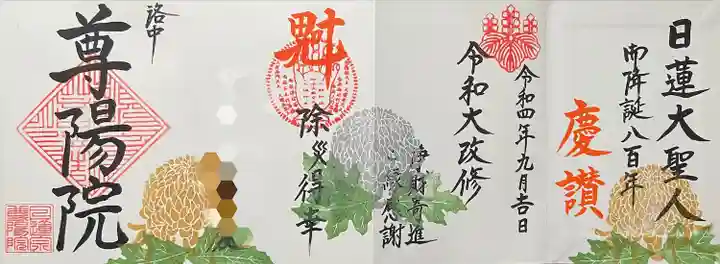 日蓮大聖人
御降誕八百年
慶讃
令和四年九月吉日
令和大改修
浄財寄進
ご縁感謝
魁
除災得幸
洛中
尊陽院